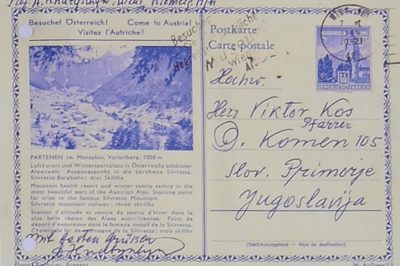 Besuchet Österreich! Come to Austria!
Visitez l'Autriche!
PARTENEN im Montafon, Vorarlberg, 1050 m
Luftkurort und Wintersportplatz in Österreichs schönster
Alpenwelt. Ausgangspunkt in die berühmte Silvretta.
Silvretta-Bergbahn; drei Skilifte
Mountain health resort and winter sports centre in the
most beautiful part of the Austrian Alps. Starting point
for trips to the famous Silvretta Mountain.
Silvretta mountain railway, three skilifts.
Station d'altitude et centre de sports d'hiver dans la
plus belle région des Alpes autrichiennes. Point de
départ d'excursions dans la fameuse montagne Silvretta.
Mit besten Grüssen
Postkarte
Carte postale
REPUBLIK ÖSTERREICH
Hochw.
Herr Viktor Kos
Pfarrer
D. Komen 105
Slov. Primorje
Yugoslavija